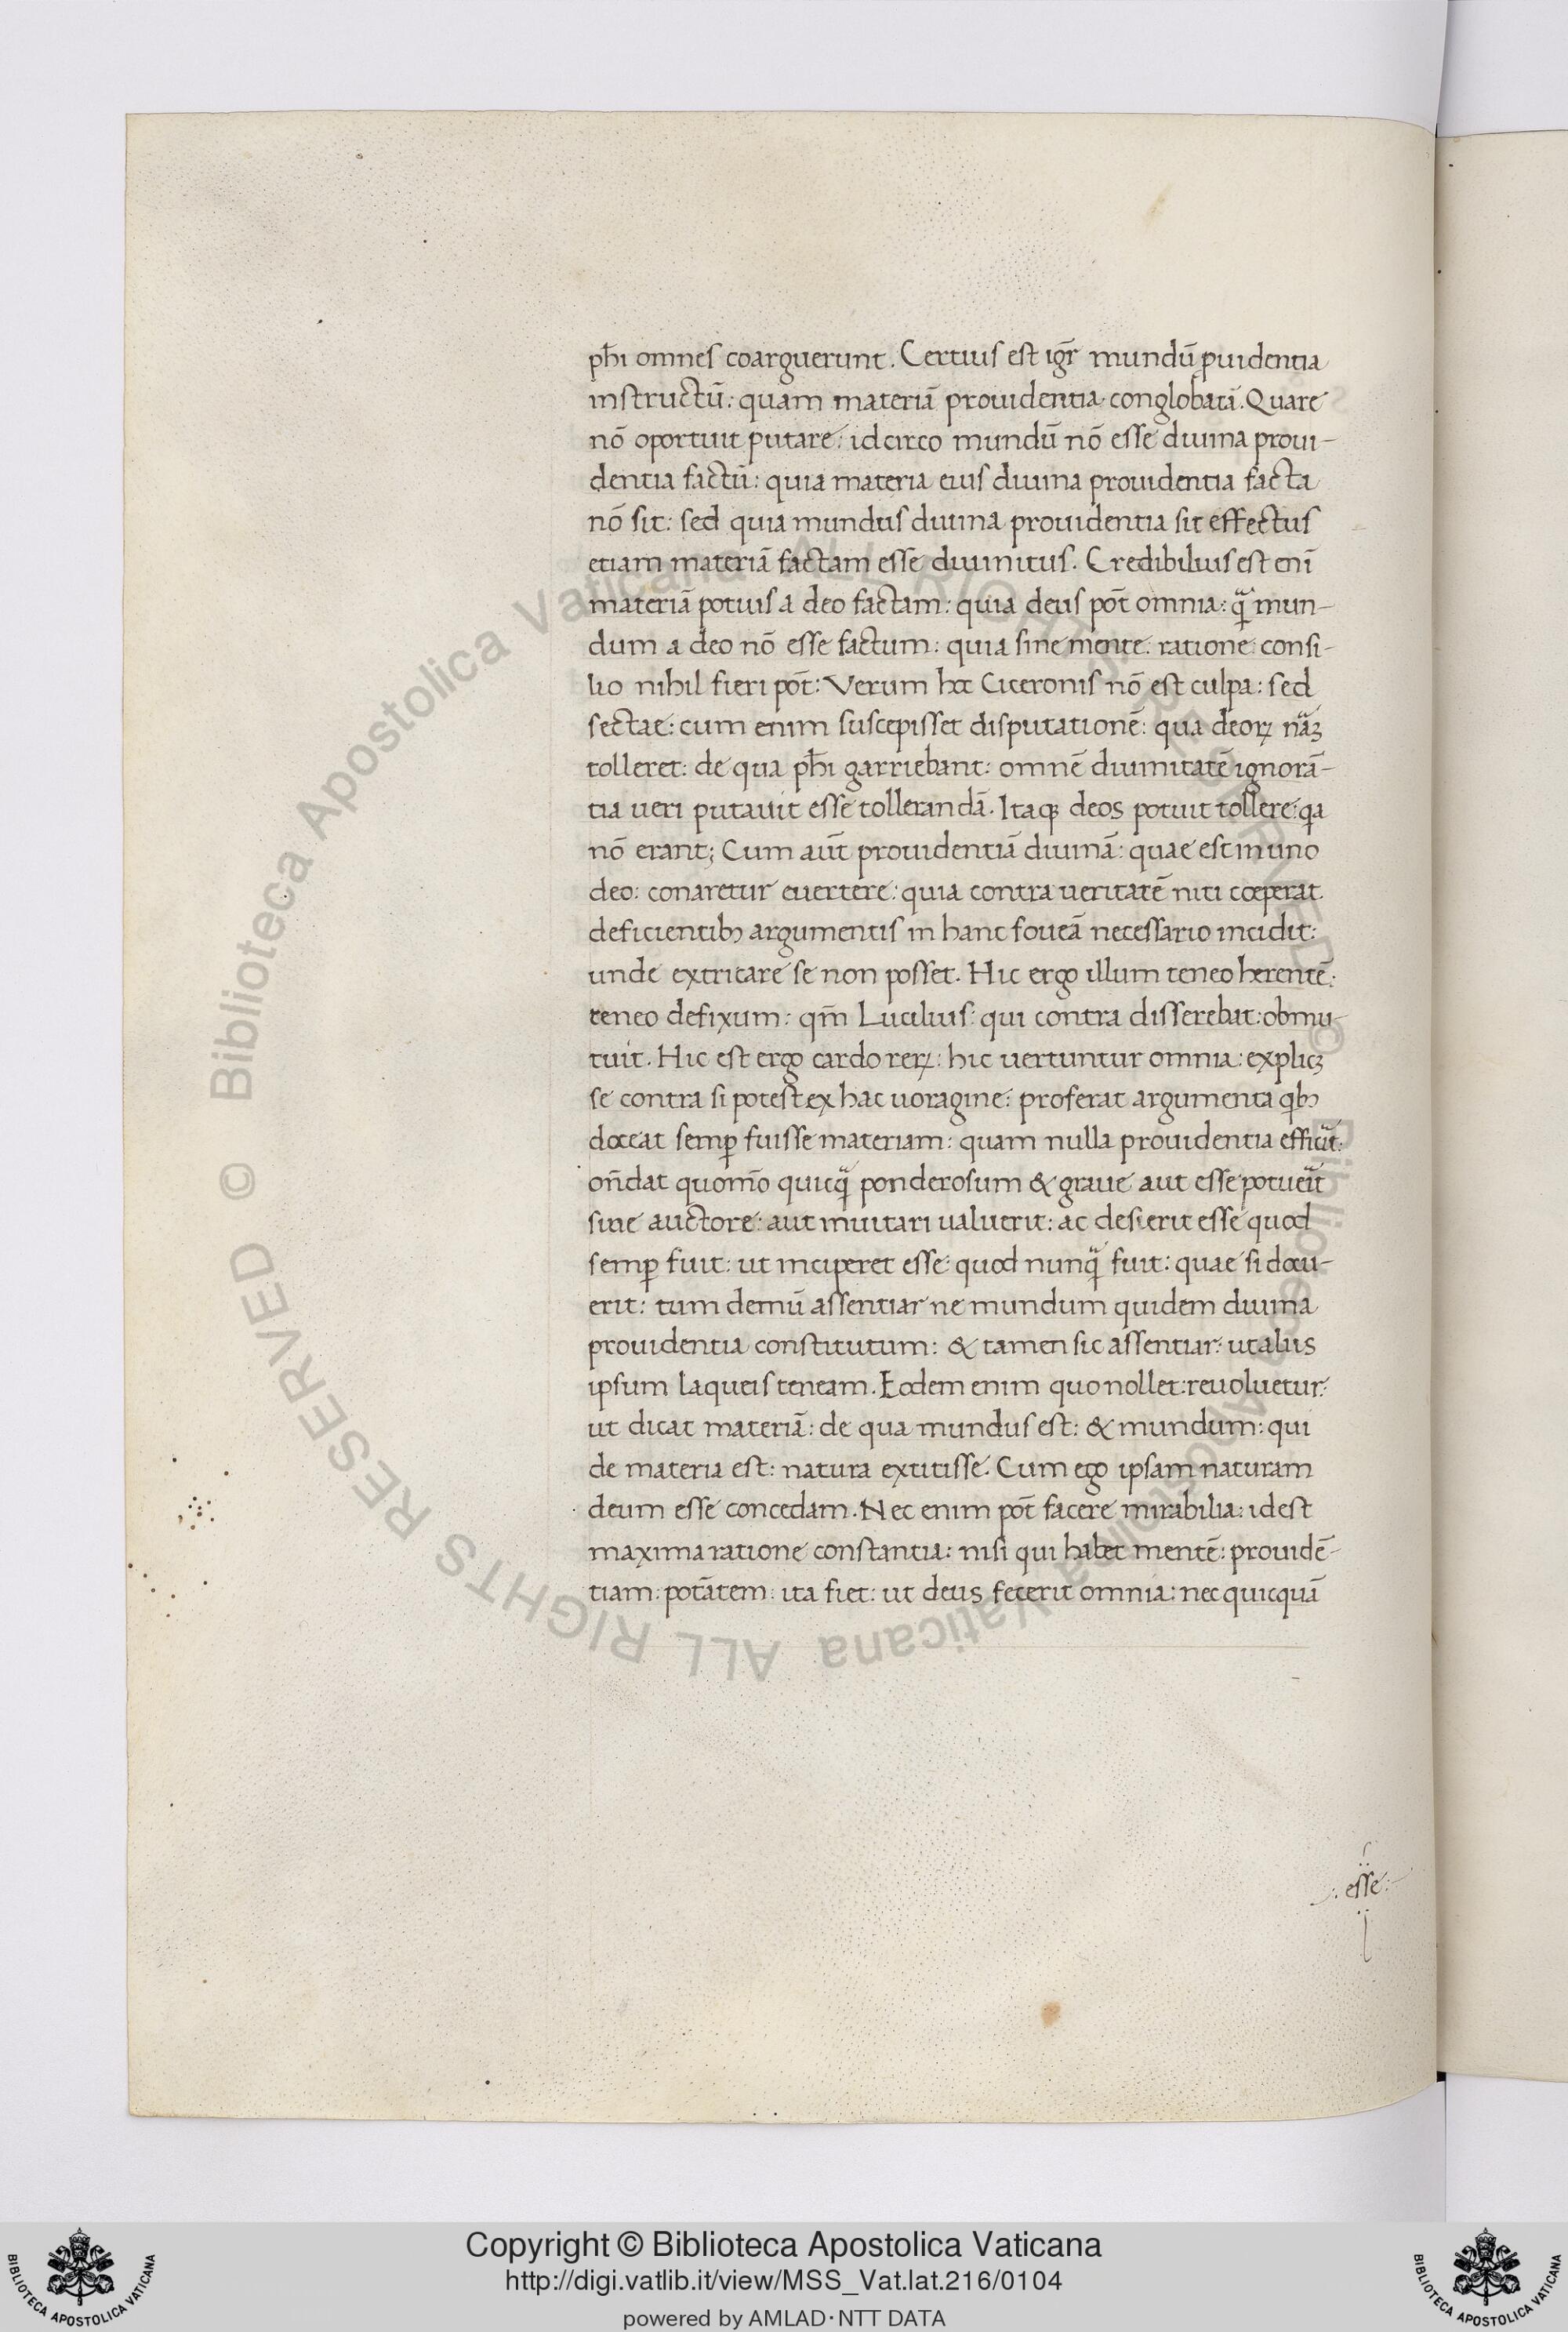 ph̄i omnes coarguerunt. Certius est igr̄ mundū ꝓuidentia
instructū: quam materiā prouidentia conglobatā. Quare
nō oportuit putare: idcirco mundū nō esse diuina proui-
dentia factū: quia materia eius diuina prouidentia facta
nō sit: sed quia mundus diuina prouidentia sit effectus
etiam materiā factam esse diuinitus. Credibilius est enī
materiā potius a deo factam: quia deus pōt omnia: qᷓ mun-
dum a deo nō esse factum: quia sine mente: ratione: consi-
lio nihil fieri pōt: Verum hoc Ciceronis nō est culpa: sed
sectae: cum enim suscepisset disputationē: qua deoꝝ nᷓaꝫ
tolleret: de qua ph̄i garriebant: omnē diuinitatē ignorā-
tia ueri putauit esse tollerandā. Itaqꝫ deos potuit tollere: qa
nō erant; Cum aūt prouidentiā diuinā: quae est in uno
deo: conaretur euertere: quia contra ueritatē niti coeperat.
deficientibꝫ argumentis in hanc foueā necessario incidit:
unde extricare se non posset. Hic ergo illum teneo herentē:
teneo defixum: qm̄ Lucilius: qui contra disserebat: obmu-
tuit. Hic est ergo cardo reꝝ: hic uertuntur omnia: explicꝫ
se contra si potest ex hac uoragine: proferat argumenta qbꝫ
doceat semꝑ fuisse materiam: quam nulla prouidentia efficit:
on̄dat quomō quicqᷓ ponderosum & graue aut esse potueīt
sine auctore: aut muitari ualuerit: ac desierit esse quod
semꝑ fuit: ut inciperet esse: quod nunqᷓ fuit: quae si docu-
erit: tum demū assentiar ne mundum quidem diuina
prouidentia constitutum: & tamen sic assentiar: ut aliis
ipsum laqueis teneam. Eodem enim quo nollet: reuoluetur:
ut dicat materiā: de qua mundus est: & mundum: qui
de materia est: natura extitisse. Cum ego ipsam naturam
deum esse concedam. Nec enim pōt facere mirabilia: idest
maxima ratione constantia: nisi qui habet mentē: prouidē-
tiam: potātem: ita fiet: ut deus fecerit omnia: nec quicquā
: esse:
© Biblioteca Apostolica Vaticana ALL RIGHTS RESERVED © Biblioteca Apostolica Vaticana ALL RIGHTS RESERVED
Copyright © Biblioteca Apostolica Vaticana
http://digi.vatlib.it/view/MSS_Vat.lat.216/0104
powered by AMLAD · NTT DATA
BIBLIOTECA APOSTOLICA VATICANA
BIBLIOTECA APOSTOLICA VATICANA